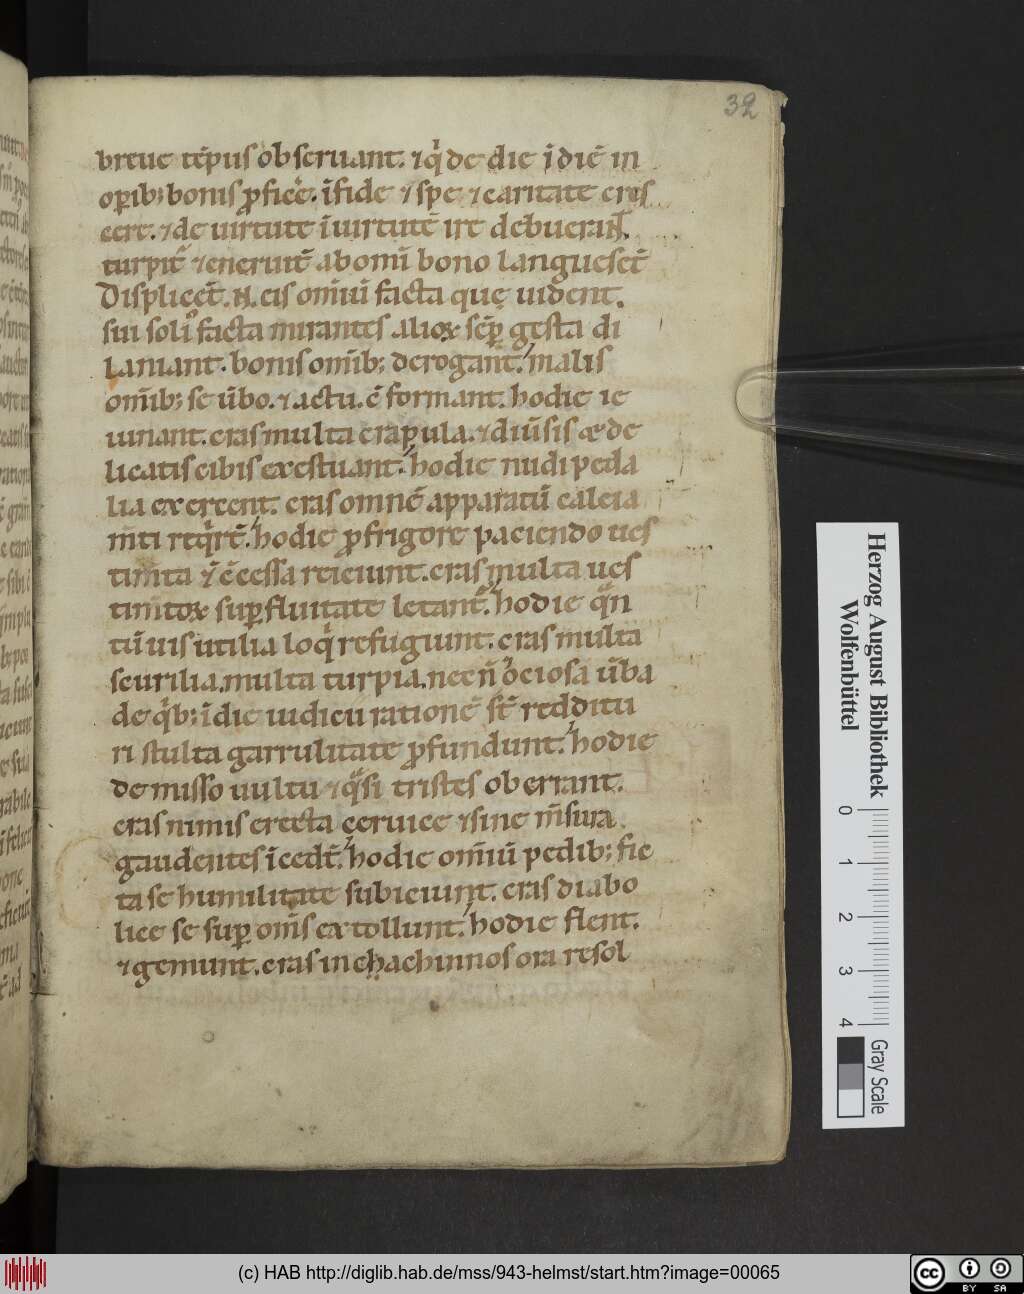 32
breue tēpus obseruant. ⁊ q̇ de die ī diē in
oꝑib; bonis ꝓficẽ. ī fide ⁊ spe ⁊ caritate cres
cere. ⁊ de uirtute ī uirtutē ire debuerant̄.
turpit̄ ⁊ eneruit̄ ab omī bono languescēt
Displicēt. N. eis omīuī facta quę uident.
sui soliˀ facta mirantes. alioꝝ sēꝑ gesta di
laniant. bonis om̄ib; derogant̄. malis
om̄ib; se ūbo. ⁊ actu. c̄ formant. hodie ie
iunant. cras multa crapula. ⁊ diūsis ac de
licatis cibis exestuant. hodie nudi peda
lia exercent. cras omnē apparatū calcia
m̄ti reqͥrē̄t. hodie ꝓ frigore paciendo ues
tim̄ta ⁊ c̄cessa reiciunt. cras multa ues
tim̄toꝝ suꝑfluitate letant̄. hodie qͣn
tūuis utilia loqͥ refugiunt. cras multa
scurilia. multa turpia. necn̄ ociosa ūba
de qͥb; ī die iudicii rationē st̄ reddītu
ri stulta garrulitate ꝓfundunt. hodie
demisso uultu ⁊ qͣsi tristes oberrant.
cras nimis erecta ceruice ⁊ sine m̄sura
gaudentes īcedt̄. hodie omīū pedib; fic
ta se humilitate subiciunt. cras diabo
lice se suꝑ om̄s extollunt. hodie flent.
⁊ gemunt. cras in chachinnos ora resol
Herzog August Bibliothek
Wolfenbüttel
0 1 2 3 4
Gray Scale
(c) HAB http://diglib.hab.de/mss/943-helmst/start.htm?image=00065
cc BY SA